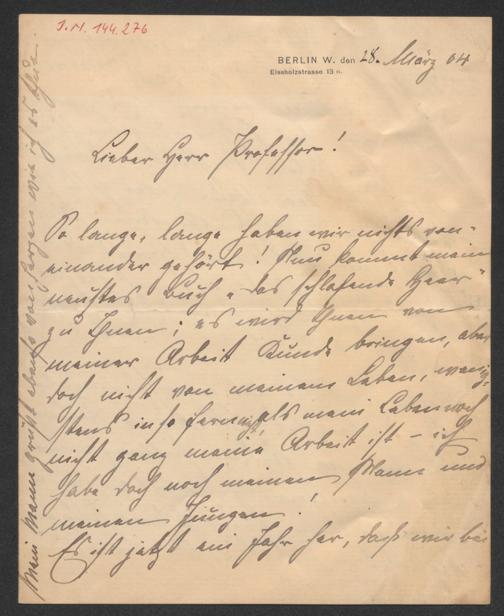 I.N. 144.276
BERLIN W. den 28. März 04
Elssholzstrasse 13 II.
Lieber Herr Professor!
So lange, lange haben wir nichts von-
einander gehört! Nun kommt mein
neustes Buch „das schlafende Heer"
zu Ihnen; es wird Ihnen von
meiner Arbeit Kunde bringen, aber
doch nicht von meinem Leben, wenig-
stens insofern als mein Leben noch
nicht ganz meine Arbeit ist – ich
habe doch noch meinen Mann und
meinen Jungen!
Es ist jetzt ein Jahr her, dass wir bei
Mein Mann grüßt ebenso von Herzen wie ich es thue.